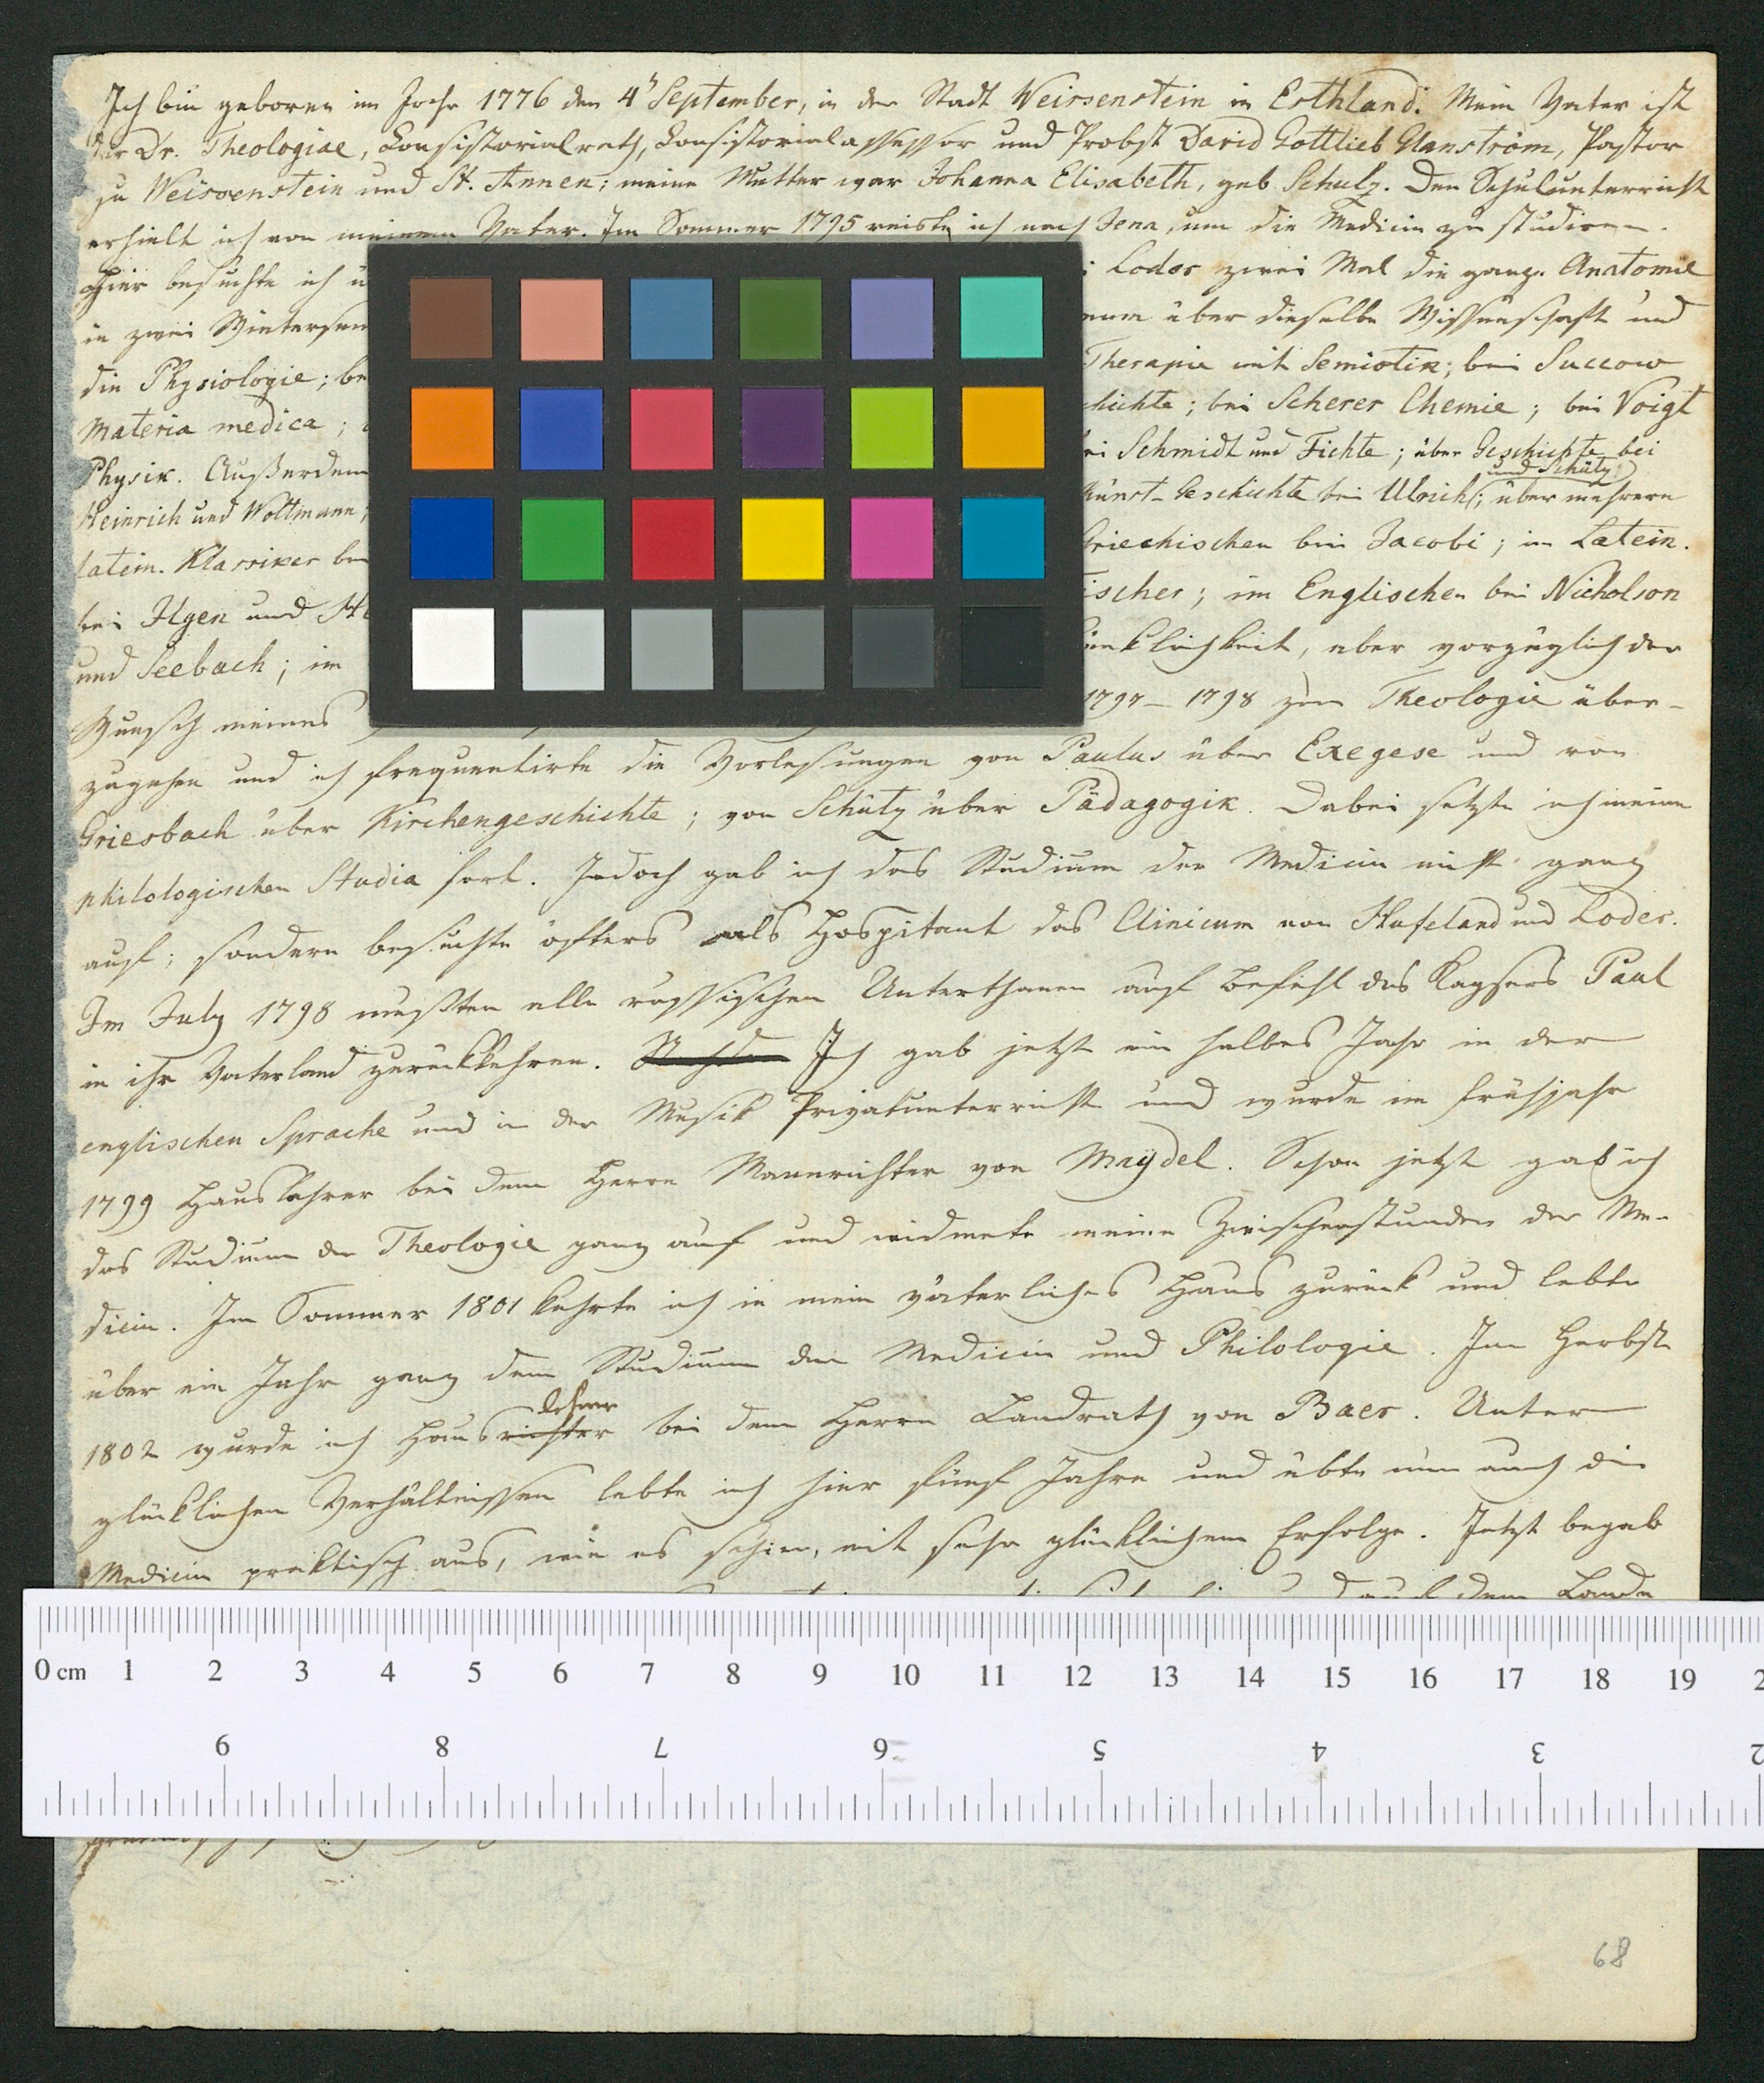 Ich bin geboren im Jahr 1776 den 4n September, in der Stadt Weissenstein in Esthland. Mein Vater ist
der Dr. Theologiae, Consistorialrath, Consistorialassessor und Probst David Gottlieb Glanström, Pastor
zu Weissenstein und St. Annen; meine Mutter war Johanna Elisabeth, geb. Schulz. Den Schulunterricht
erhielt ich von meinem Vater. Im Sommer 1795 reiste ich nach Jena, um die Medicin zu studiren.
Hier besuchte ich Loder zwei Mal die ganze Anatomie
in zwei über dieselbe Wissenschaft und
die Physiologie; Therapie mit Semiotik; bei Succow
Materia medica; bei Scherer Chemie; bei Voigt
Physik. Außerdem Schmidt und Fichte; über Geschichte bei
und Schütz
Heinrich und Woltmann; Kunst-Geschichte bei Ulrich; über mehrere
latein. Klassiker Griechischen bei Jacobi; im Latein.
bei Ilgen und im Englischen bei Nicholson
und Seebach; im aber vorzüglich der
Wunsch meines 1797-1798 zur Theologie über-
zugehen und ich frequentirte die Vorlesungen von Paulus über Exegese und von
Griesbach über Kirchengeschichte; von Schütz über Pädagogik. Dabei setzte ich meine
philologischen Studia fort. Jedoch gab ich das Studium der Medicin nicht ganz
auf; sondern besuchte öfters als Hospitant das Clinicum von Hufeland und Loder.
Im July 1798 mußten alle russischen Unterthanen auf Befehl des Kaysers Paul
in ihr Vaterland zurückkehren. Ich gab jetzt ein halbes Jahr in der
englischen Sprache und in der Musik Privatunterricht und wurde im Frühjahr
1799 Hauslehrer bei dem Herrn Mannrichter von Maydel. Schon jetzt gab ich
das Studium der Theologie ganz auf und widmete meine Zwischenstunden der Me-
dicin. Im Sommer 1801 kehrte ich in mein väterliches Haus zurück und lebte
über ein Jahr ganz dem Studium der Medicin und Philologie. Im Herbst
lehrer
1802 wurde ich Hausrichter bei dem Herrn Landrath von Baer. Unter
glücklichen Verhältnissen lebte ich hier fünf Jahre und übte nun auch die
Medicin praktisch aus, wie es schien, mit sehr glücklichem Erfolge. Jetzt begab
auf dem Lande
0 cm 1 2 3 4 5 6 7 8 9 10 11 12 13 14 15 16 17 18 19 2
9 8 7 6 5 4 3 2
68